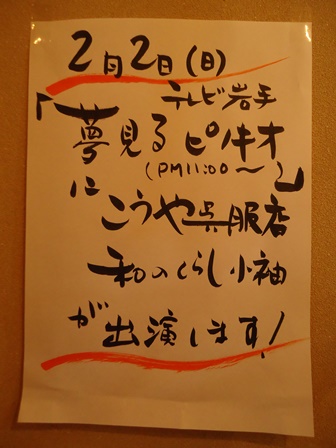 2月2日(日)
テレビ岩手
「夢見るピノキオ
(PM11:00〜)」
に
こうや呉服店
和のくらし小袖
が出演します!